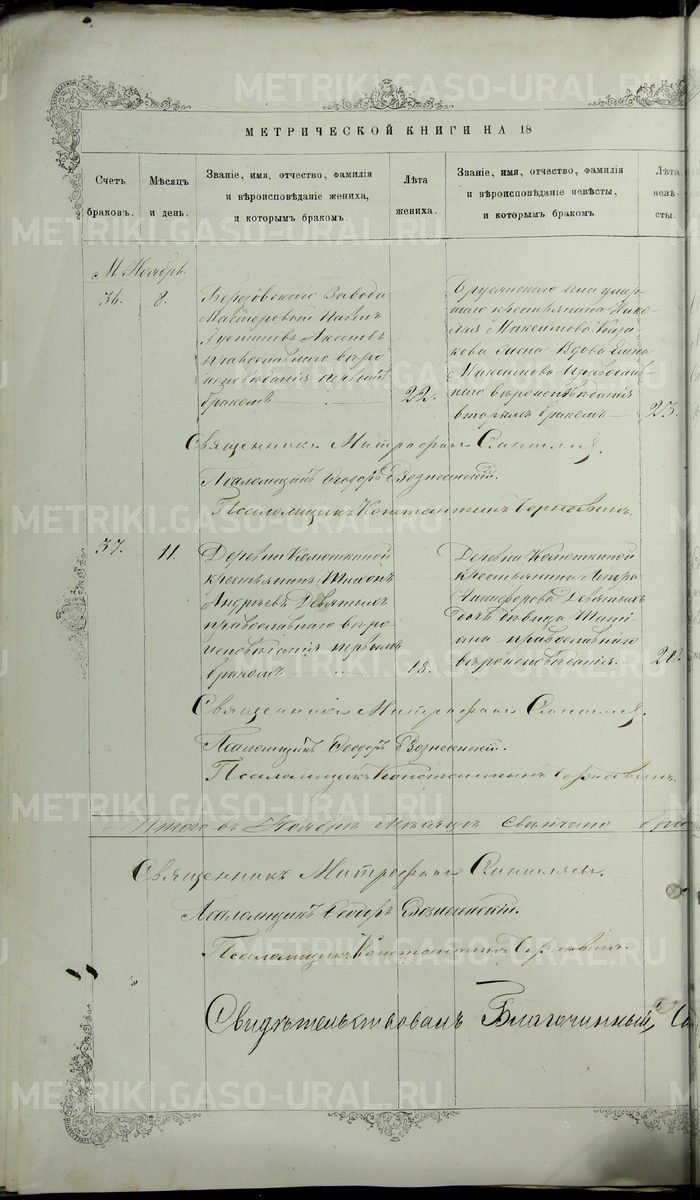 METRIKI.GASO-URAL.RU
МЕТРИЧЕСКОЙ КНИГИ НА 18
Счетъ браковъ.
Мѣсяцъ и день.
Званіе, имя, отчество, фамилія и вѣроисповѣданіе жениха, и которымъ бракомъ.
Лѣта жениха.
Званіе, имя, отчество, фамилія и вѣроисповѣданіе невѣсты, и которымъ бракомъ
Лѣта невѣ-сты.
М. Ноябрь
36.
8.
Березовскаго Завода
Мастеровой
Аксеновъ
православнаго вѣро
исповѣданія первымъ
бракомъ
22.
Бруснянскаго села умер
шаго крестьянина Нико
лая Максимова
жена Вдова Елена
Максимова Православ
наго вѣроисповѣданія
вторымъ бракомъ
23.
Священникъ Митрофанъ
Псаломщикъ Ѳеодоръ Вознесенскій.
Псаломщикъ Константинъ
37.
11.
Деревни Колюткиной
крестьянинъ
Андреевъ Девятыхъ
православнаго вѣро
исповѣданія первымъ
бракомъ
18.
Деревни Колюткиной
крестьянина Петра
Никифорова Девятыхъ
дочь дѣвица Тати
ана православнаго
вѣроисповѣданія
21.
Священникъ Митрофанъ
Псаломщикъ Ѳеодоръ Вознесенскій.
Псаломщикъ Константинъ
Итого въ Ноябрѣ Мѣсяцѣ Свѣнчано
Священникъ Митрофанъ
Псаломщикъ Ѳеодоръ Вознесенскій.
Псаломщикъ Константинъ
Свидѣтельствовалъ Благочинный,